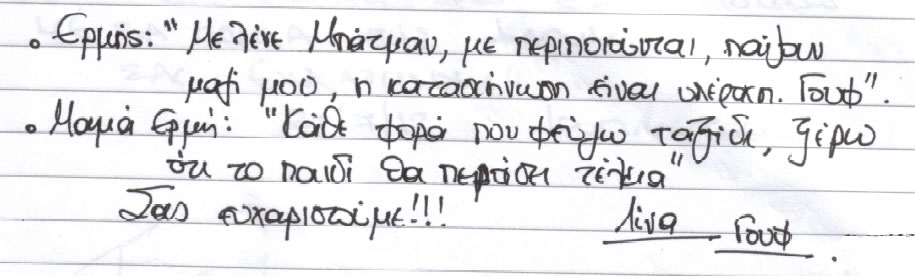 • Ερμής: "Με λένε Μπάτμαν, με περιποιούνται, παίζουν
μαζί μου, η κατασκήνωση είναι υπέροχη. Γουφ".
• Μαμά Ερμή: "Κάθε φορά που φεύγω ταξίδι, ξέρω
ότι το παιδί θα περάσει τέλεια"
Σας ευχαριστούμε!!! Λίνα Γουφ.